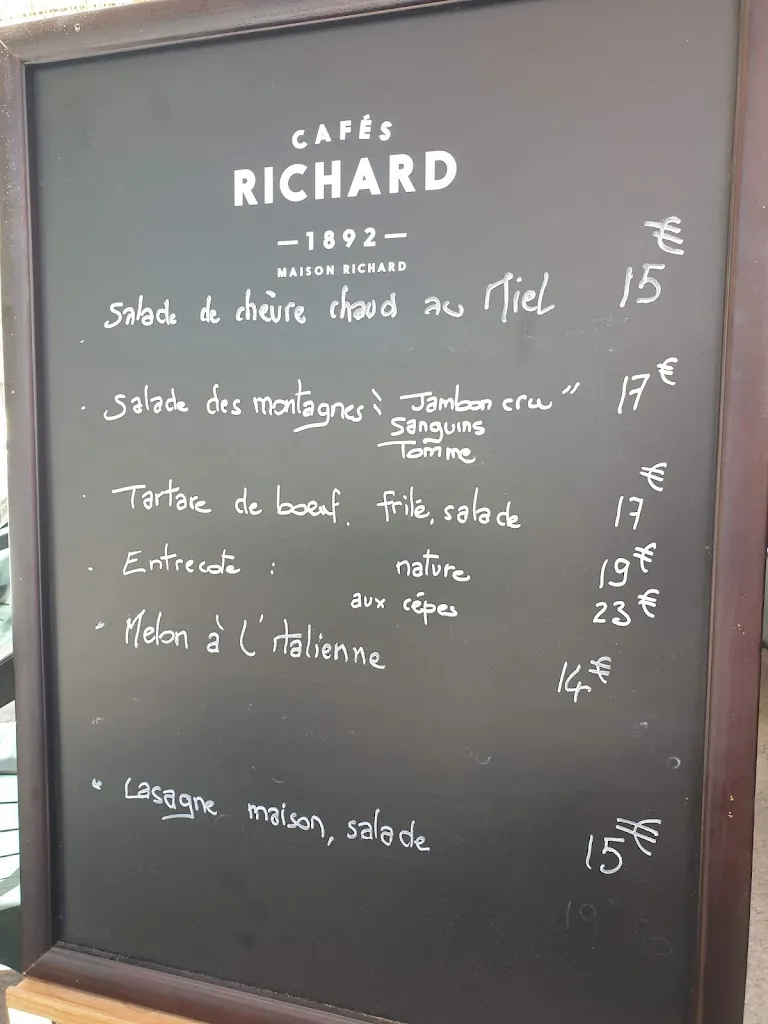 CAFÉS
RICHARD
—1892—
MAISON RICHARD
Salade de chèvre chaud au Miel 15€
· Salade des montagnes: Jambon cru " 17€
Sanguins
Tomme
· Tartare de boeuf. frite, salade 17€
· Entrecote : nature 19€
aux cépes 23€
· Melon à l'italienne 14€
· Lasagne maison, salade 15€
19